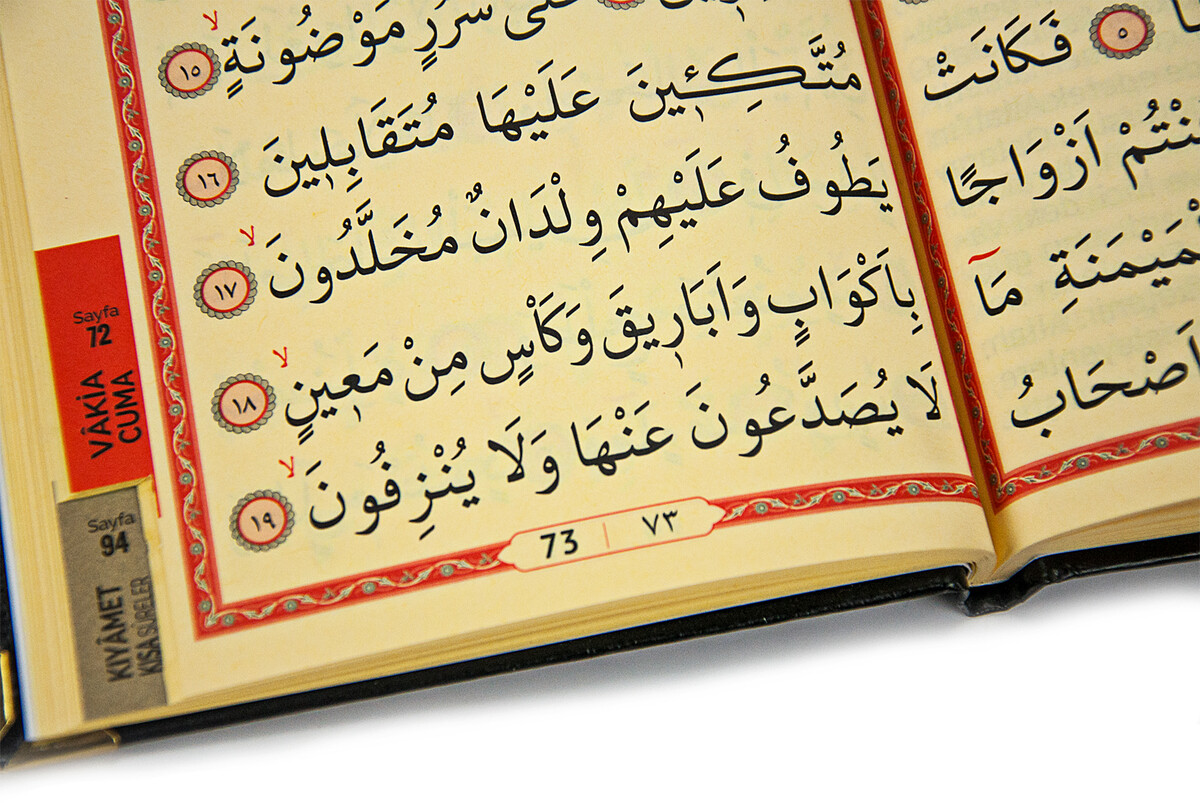 عَلٰى سُرُرٍ مَوْضُونَةٍۙ ﴿١٥﴾
مُتَّكِـِٔينَ عَلَيْهَا مُتَقَابِلِينَ ﴿١٦﴾
يَطُوفُ عَلَيْهِمْ وِلْدَانٌ مُخَلَّدُونَۙ ﴿١٧﴾
بِاَكْوَابٍ وَاَبَارِيقَ وَكَأْسٍ مِنْ مَعِينٍۙ ﴿١٨﴾
لَا يُصَدَّعُونَ عَنْهَا وَلَا يُنْزِفُونَۙ ﴿١٩﴾
73 | ٧٣
﴿٥﴾ فَكَانَتْ
اَزْوَاجًا
مَٓا
اَصْحَابُ
Sayfa
72
VÂKİA
CUMA
Sayfa
94
KIYÂMET
KISA SÛRELER